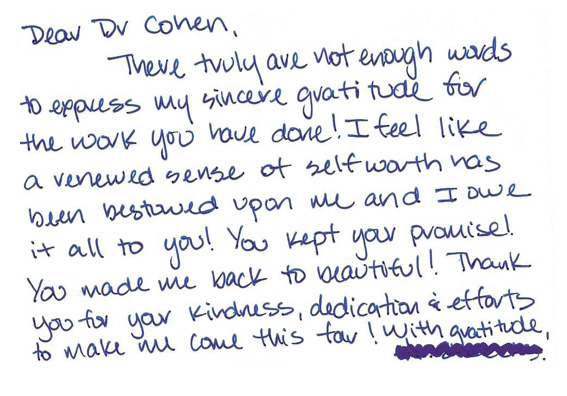 Dear Dr Cohen,
There truly are not enough words
to express my sincere gratitude for
the work you have done! I feel like
a renewed sense of self worth has
been bestowed upon me and I owe
it all to you! You kept your promise!
You made me back to beautiful! Thank
you for your kindness, dedication & efforts
to make me come this far! With gratitude,